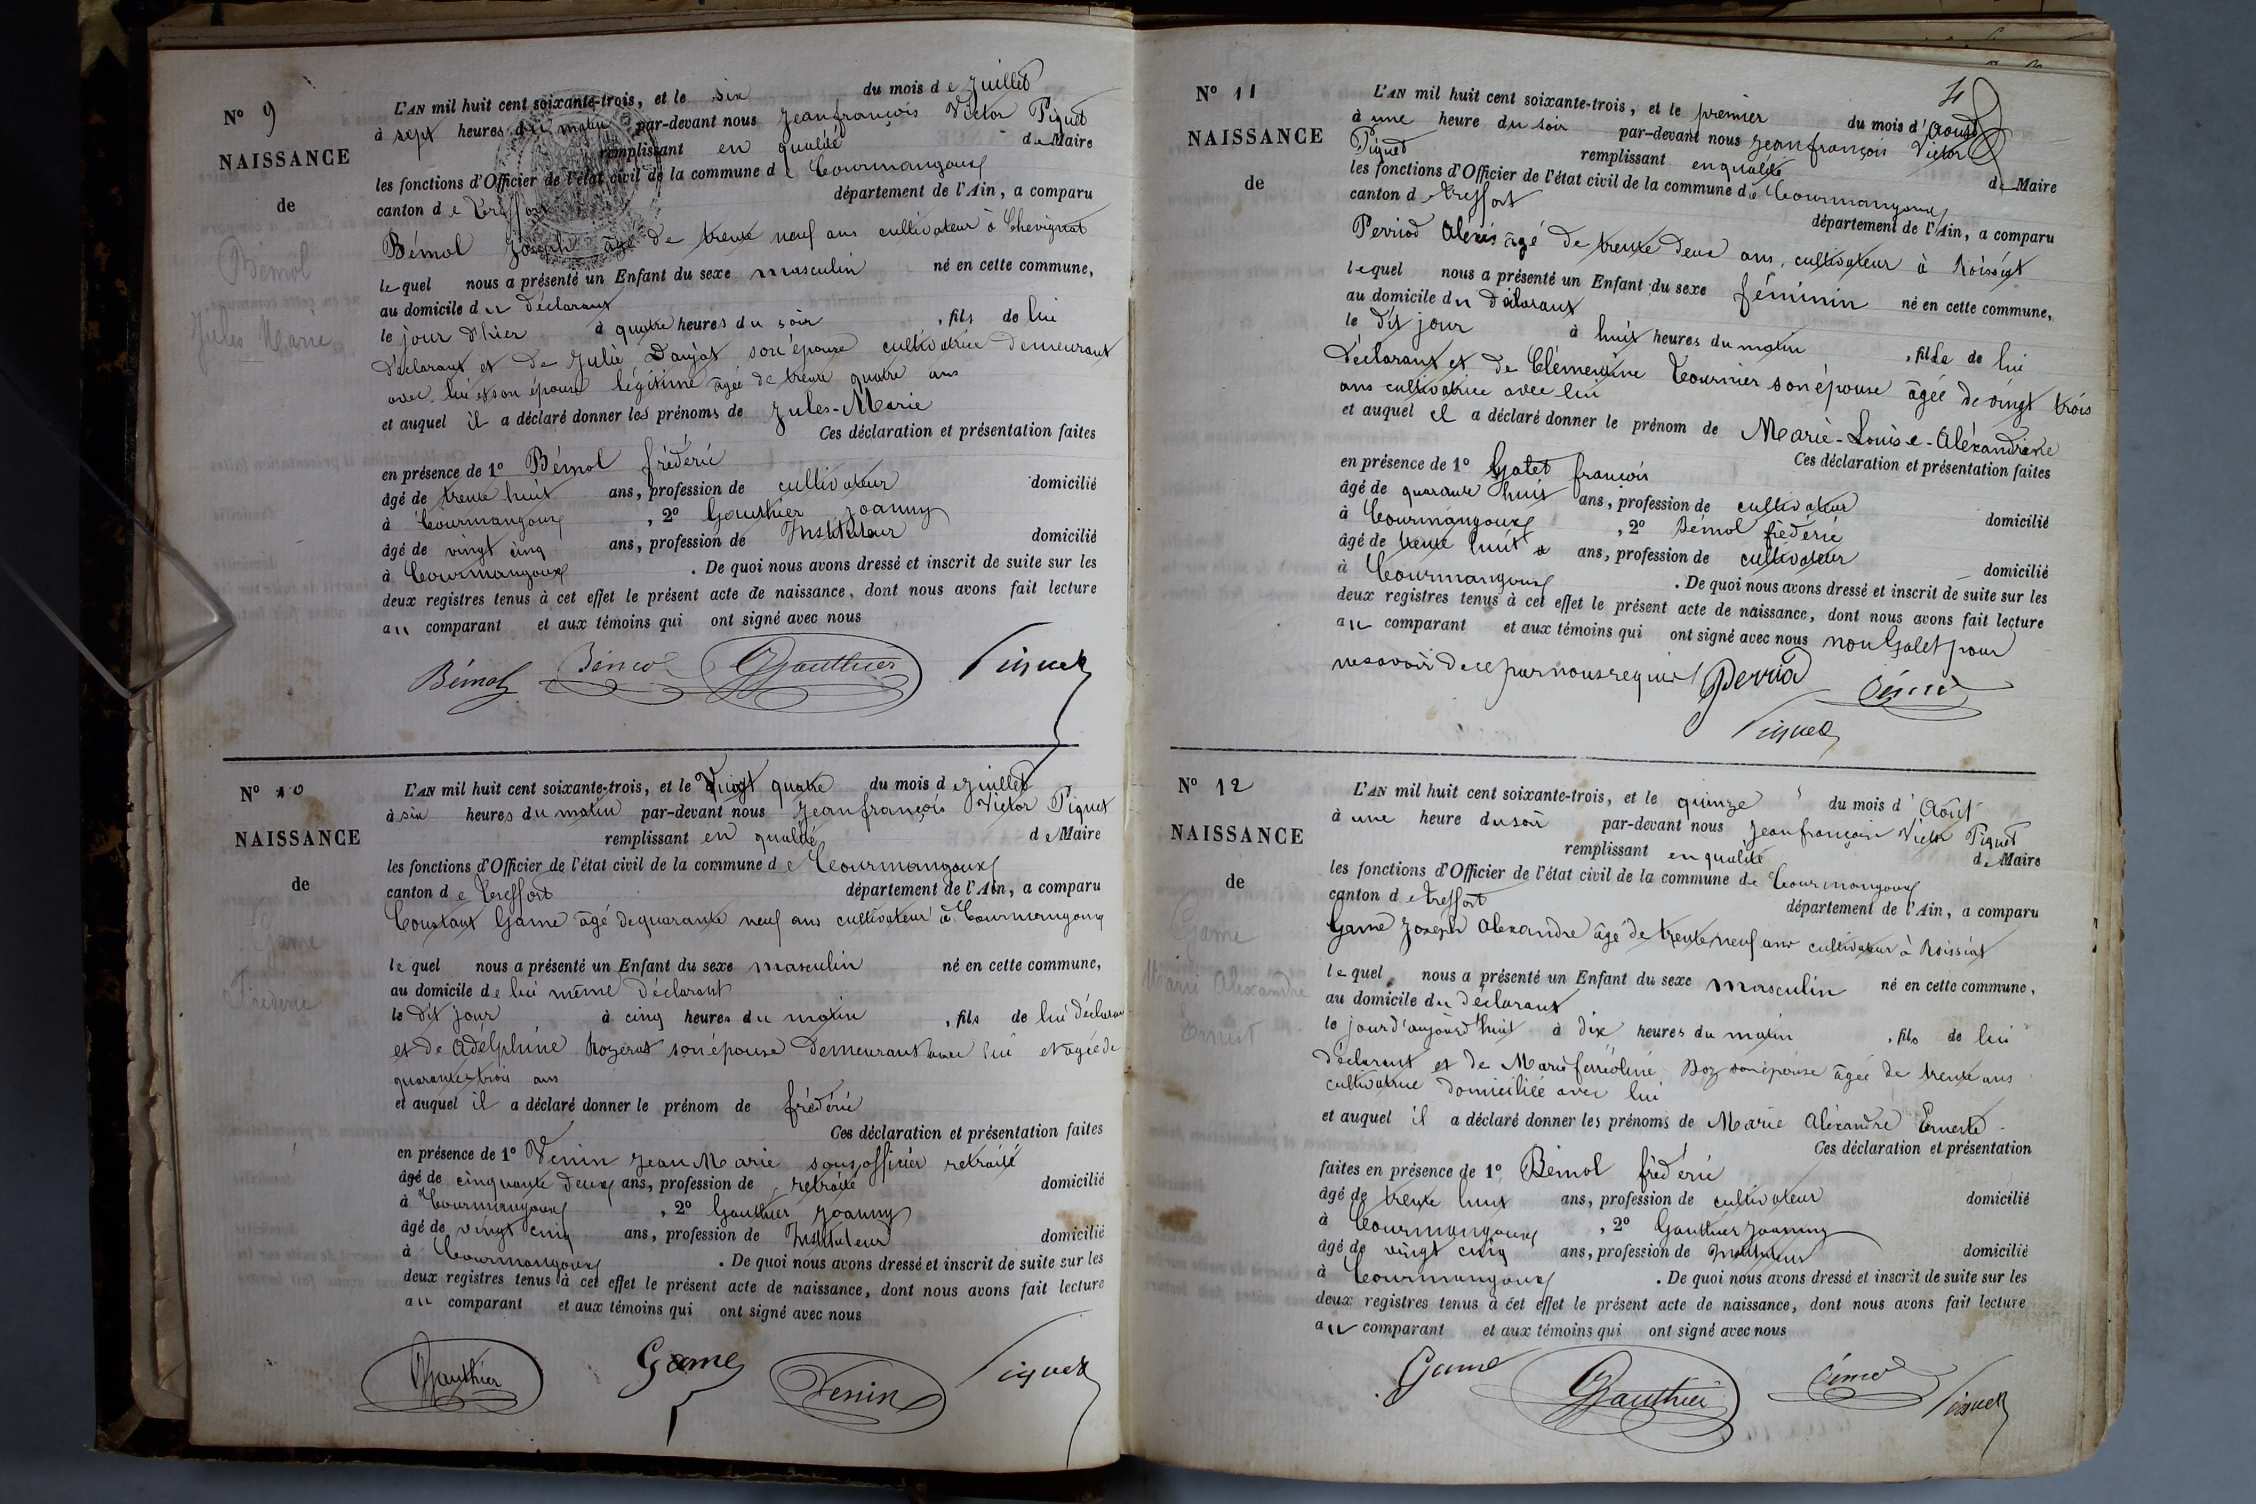 N° 9
NAISSANCE
de
Bémol
Jules Marie
L'AN mil huit cent soixante-trois, et le six du mois de Juillet
à sept heures du matin par-devant nous Jeanfrançois Victor Piquet
remplissant en qualité de Maire
les fonctions d'Officier de l'état civil de la commune de Courmangoux
canton de Treffort département de l'Ain, a comparu
Bémol Joseph âgé de trente neuf ans cultivateur à Chevignat
lequel nous a présenté un Enfant du sexe masculin né en cette commune,
au domicile du déclarant
le jour d'hier à quatre heures du soir, fils de lui
déclarant et de Julie Daujat son épouse cultivatrice demeurant
avec lui et son épouse légitime âgée de trente quatre ans
et auquel il a déclaré donner les prénoms de Jules-Marie
Ces déclaration et présentation faites
en présence de 1° Bémol fréderic
âgé de trente huit ans, profession de cultivateur domicilié
à Courmangoux, 2° Gauthier Joanny
âgé de vingt cinq ans, profession de Instituteur domicilié
à Courmangoux. De quoi nous avons dressé et inscrit de suite sur les
deux registres tenus à cet effet le présent acte de naissance, dont nous avons fait lecture
au comparant et aux témoins qui ont signé avec nous
Bémol Bémol Gauthier Piquet
N° 10
NAISSANCE
de
Game
Fréderic
L'AN mil huit cent soixante-trois, et le Vingt quatre du mois de Juillet
à six heures du matin par-devant nous Jeanfrançois Victor Piquet
remplissant en qualité de Maire
les fonctions d'Officier de l'état civil de la commune de Courmangoux
canton de Treffort département de l'Ain, a comparu
Constant Game âgé de quarante neuf ans cultivateur à Courmangoux
lequel nous a présenté un Enfant du sexe masculin né en cette commune,
au domicile de lui même déclarant
le dit jour à cinq heures du matin, fils de lui déclarant
et de Adélphine Rozerat son épouse demeurant avec lui et agée de
quarante trois ans
et auquel il a déclaré donner le prénom de fréderic
Ces déclaration et présentation faites
en présence de 1° Venin Jean Marie sous officier retraité
âgé de cinquante deux ans, profession de retraité domicilié
à Courmangoux, 2° Gauthier Joanny
âgé de vingt cinq ans, profession de Instituteur domicilié
à Courmangoux. De quoi nous avons dressé et inscrit de suite sur les
deux registres tenus à cet effet le présent acte de naissance, dont nous avons fait lecture
au comparant et aux témoins qui ont signé avec nous
Gauthier Game Venin Piquet
4
N° 11
NAISSANCE
de
L'AN mil huit cent soixante-trois, et le premier du mois d'Aoust
à une heure du soir par-devant nous Jeanfrançois Victor
Piquet remplissant en qualité de Maire
les fonctions d'Officier de l'état civil de la commune de Courmangoux
canton de treffort département de l'Ain, a comparu
Perriod Aléxis âgé de trente deux ans, cultivateur à Roissiat
lequel nous a présenté un Enfant du sexe féminin né en cette commune,
au domicile du déclarant
le dit jour à huit heures du matin, fille de lui
déclarant et de Clémentine Tournier son épouse âgée de vingt trois
ans cultivatrice avec lui
et auquel il a déclaré donner le prénom de Marie-Louise-Aléxandrine
Ces déclaration et présentation faites
en présence de 1° Galet françois
âgé de quarante huit ans, profession de cultivateur domicilié
à Courmangoux, 2° Bémol fréderic
âgé de trente huit ans, profession de cultivateur domicilié
à Courmangoux. De quoi nous avons dressé et inscrit de suite sur les
deux registres tenus à cet effet le présent acte de naissance, dont nous avons fait lecture
au comparant et aux témoins qui ont signé avec nous non Galet pour
ne savoir de ce par nous requis Perriod Bémol
Piquet
N° 12
NAISSANCE
de
Game
Marie Alexandre
Ernest
L'AN mil huit cent soixante-trois, et le quinze du mois d'Août
à une heure du soir par-devant nous Jeanfrançois Victor Piquet
remplissant en qualité de Maire
les fonctions d'Officier de l'état civil de la commune de Courmangoux
canton de treffort département de l'Ain, a comparu
Game Joseph Alexandre âgé de trente neuf ans cultivateur à Roissiat
lequel nous a présenté un Enfant du sexe masculin né en cette commune,
au domicile du déclarant
le jour d'aujourd'huit à dix heures du matin, fils de lui
déclarant et de Marie ferréoline Boz son épouse âgée de trente ans
cultivatrice domiciliée avec lui
et auquel il a déclaré donner les prénoms de Marie Aléxandre Erneste
Ces déclaration et présentation
faites en présence de 1° Bémol fréderic
âgé de trente huit ans, profession de cultivateur domicilié
à Courmangoux, 2° Gauthier Joanny
âgé de vingt cinq ans, profession de Instituteur domicilié
à Courmangoux. De quoi nous avons dressé et inscrit de suite sur les
deux registres tenus à cet effet le présent acte de naissance, dont nous avons fait lecture
au comparant et aux témoins qui ont signé avec nous
Game Gauthier Bémol Piquet